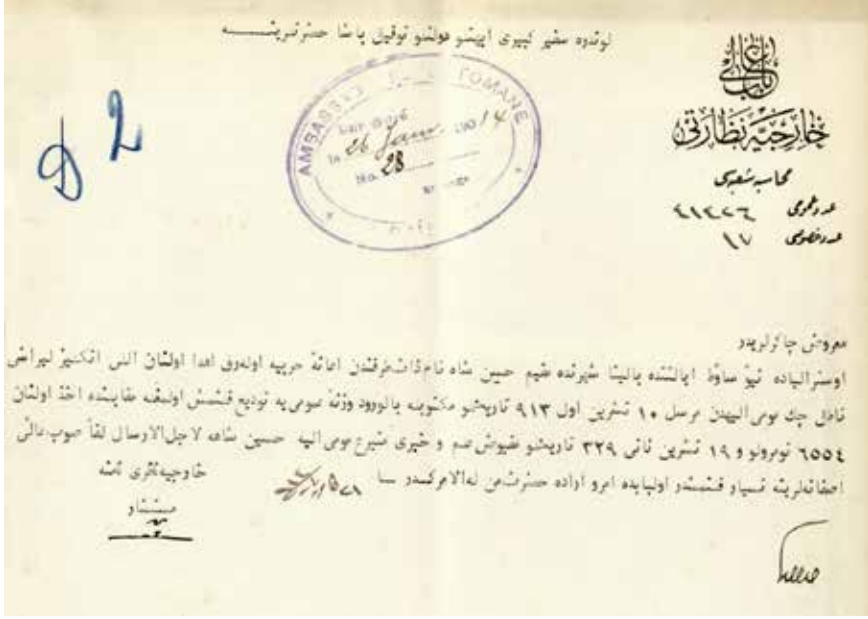 لوندره سفیر کبیری ابهتلو دولتلو توفیق پاشا حضرتلرینه
باب عالی
خارجیه نظارتی
محاسبه شعبه‌سی
عدد عمومی ٤١٢٢٦
عدد خصوصی ١٧
D 2
AMBASSADE TOMANE
le 26 Janv. 1914
No. 28
معروض چاکرلریدر
اوسترالیاده نیو ساوت ایالتنده بالینا شهرنده مقیم حسین شاه نام ذات طرفندن اعانۀ حربیه اوله‌رق اهدا اولنان اللی انگلیز لیراسنی
ناطق چك مومی الیهدن مرسل ١٠ تشرین اول ٩١٣ تاریخلو مکتوبله بالورود وزنۀ عمومی‌یه تودیع قلنمش اولمغله مقابلنده اخذ اولنان
٦٥٥٤ نومرولو و ١٩ تشرین ثانی ٣٢٩ تاریخلو مقبوض علم و خبری متبرع مومی الیه حسین شاهه لاجل الارسال لفاً صوب عالی
اصفانه‌لرینه تسیار قلنمشدر اولبابده امر و اراده حضرت من له الامرکدر
خارجیه ناظری نامنه
مستشار